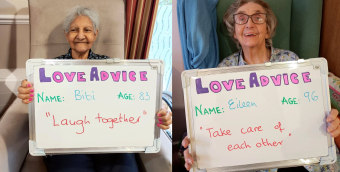 LOVE ADVICE
NAME: Bibi AGE: 83
"Laugh together"
LOVE ADVICE
NAME: Eileen AGE: 96
"Take care of
each other"